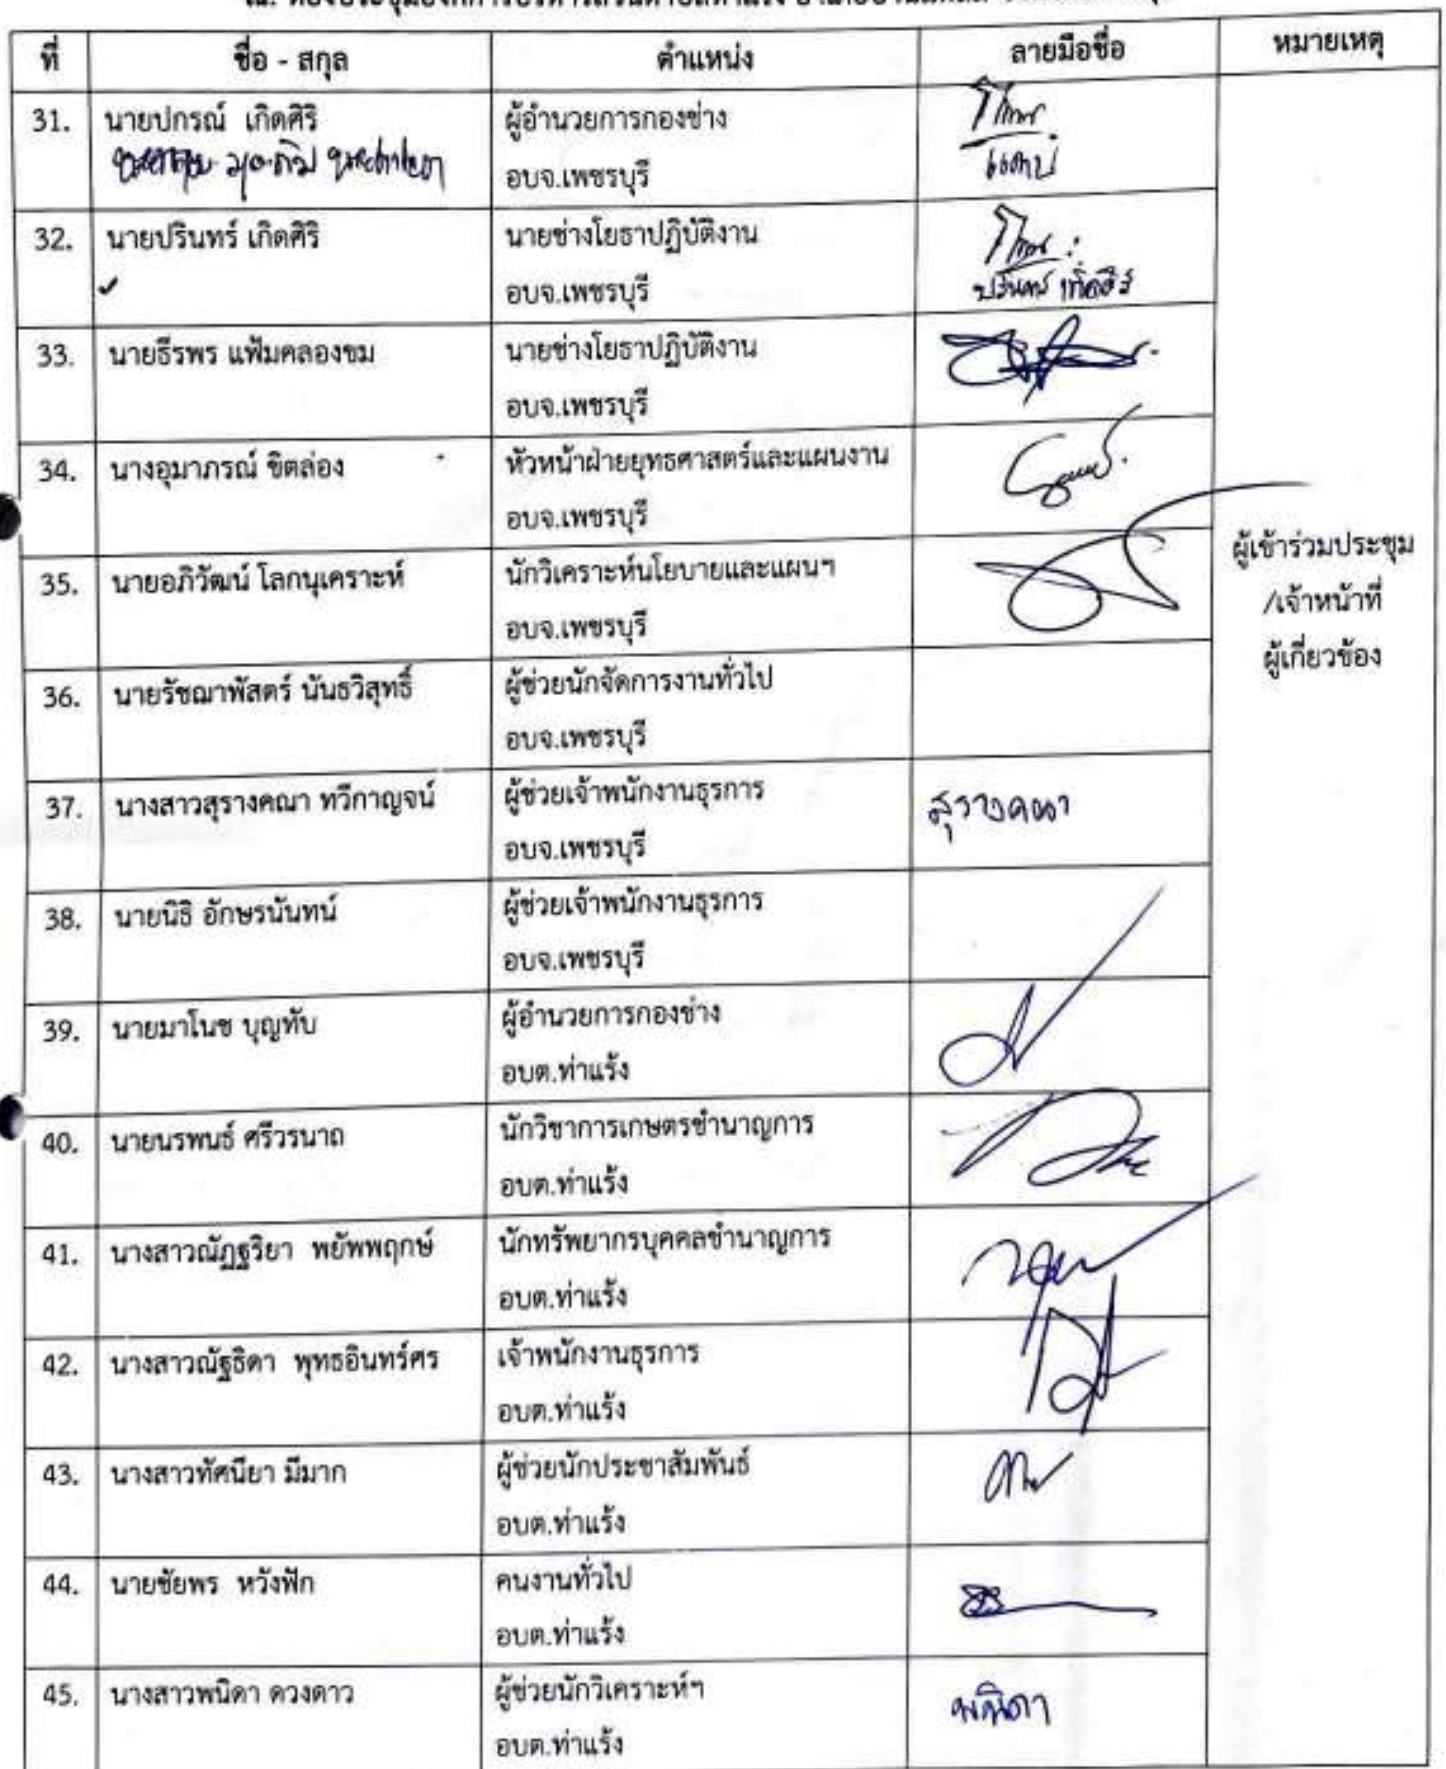 ที่ ชื่อ - สกุล ตำแหน่ง ลายมือชื่อ หมายเหตุ
31. นายปกรณ์ เกิดศิริ ผู้อำนวยการกองช่าง
อบจ.เพชรบุรี
32. นายปรินทร์ เกิดศิริ นายช่างโยธาปฏิบัติงาน
อบจ.เพชรบุรี ปรินทร์ เกิดศิริ
33. นายธีรพร แฟ้มคลองขม นายช่างโยธาปฏิบัติงาน
อบจ.เพชรบุรี
34. นางอุมาภรณ์ ขิตล่อง หัวหน้าฝ่ายยุทธศาสตร์และแผนงาน
อบจ.เพชรบุรี
35. นายอภิวัฒน์ โลกนุเคราะห์ นักวิเคราะห์นโยบายและแผนฯ
อบจ.เพชรบุรี
ผู้เข้าร่วมประชุม
/เจ้าหน้าที่
ผู้เกี่ยวข้อง
36. นายรัชฌาพัสตร์ นันธวิสุทธิ์ ผู้ช่วยนักจัดการงานทั่วไป
อบจ.เพชรบุรี
37. นางสาวสุรางคณา ทวีกาญจน์ ผู้ช่วยเจ้าพนักงานธุรการ สุรางคณา
อบจ.เพชรบุรี
38. นายนิธิ อักษรนันทน์ ผู้ช่วยเจ้าพนักงานธุรการ
อบจ.เพชรบุรี
39. นายมาโนช บุญทับ ผู้อำนวยการกองช่าง
อบต.ท่าแร้ง
40. นายนรพนธ์ ศรีวรนาถ นักวิชาการเกษตรชำนาญการ
อบต.ท่าแร้ง
41. นางสาวณัฏฐริยา พยัพพฤกษ์ นักทรัพยากรบุคคลชำนาญการ
อบต.ท่าแร้ง
42. นางสาวณัฐธิดา พุทธอินทร์ศร เจ้าพนักงานธุรการ
อบต.ท่าแร้ง
43. นางสาวทัศนียา มีมาก ผู้ช่วยนักประชาสัมพันธ์
อบต.ท่าแร้ง
44. นายชัยพร หวังฟัก คนงานทั่วไป
อบต.ท่าแร้ง
45. นางสาวพนิดา ดวงดาว ผู้ช่วยนักวิเคราะห์ฯ พนิดา
อบต.ท่าแร้ง